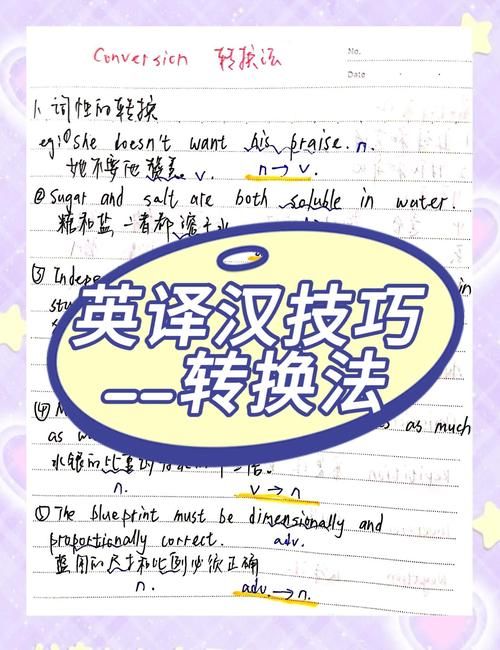 Conversion 转换法
No.
Date
1. 词性的转换
eg: ① She doesn't want his praise. n.
她不要他 v.
n → v.
② Sugar and salt are both soluble in water.
糖和盐二者都溶于水
③ Indepe in
stu
英译汉技巧
——转换法
④ M as much
as w
水银的比重
n. v → n
⑤ The blueprint must be dimensionally and
proportionally correct. adv.
蓝图的尺寸和比例必须正确
n. adv. → n.